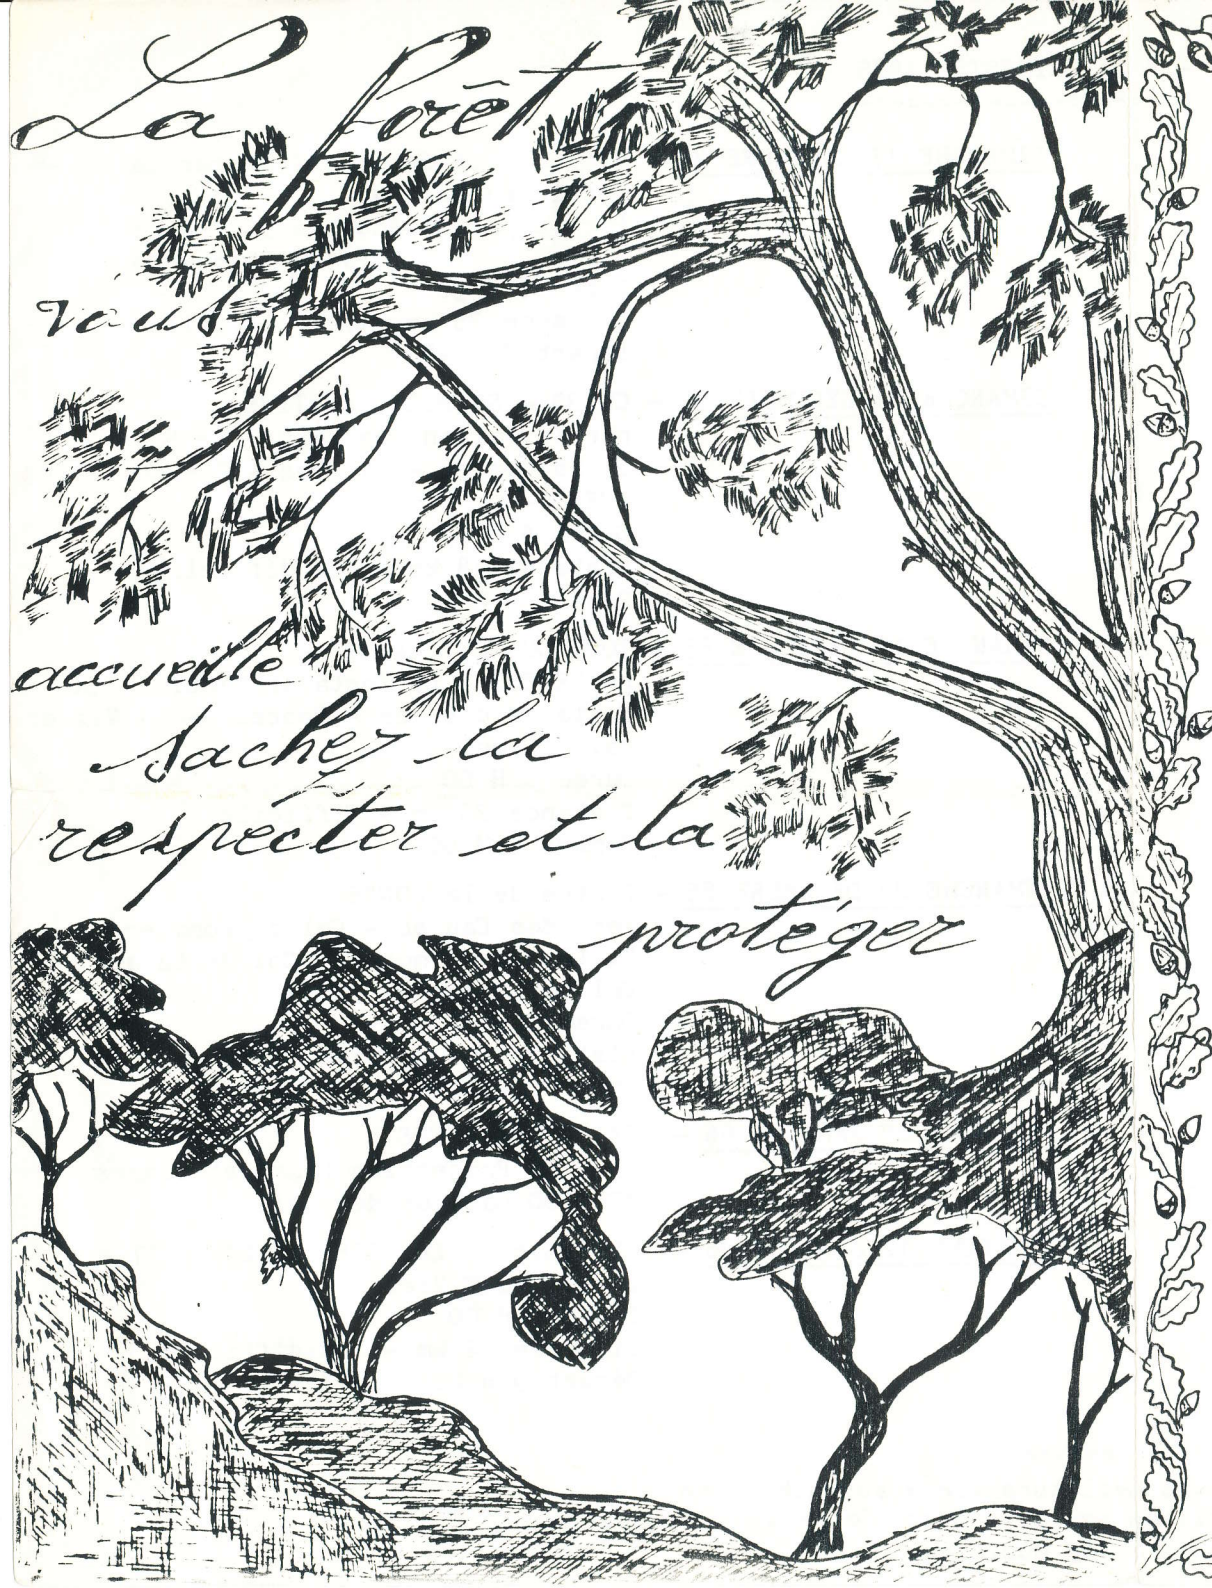 La forêt
vous
accueille
sachez la
respecter et la
protéger